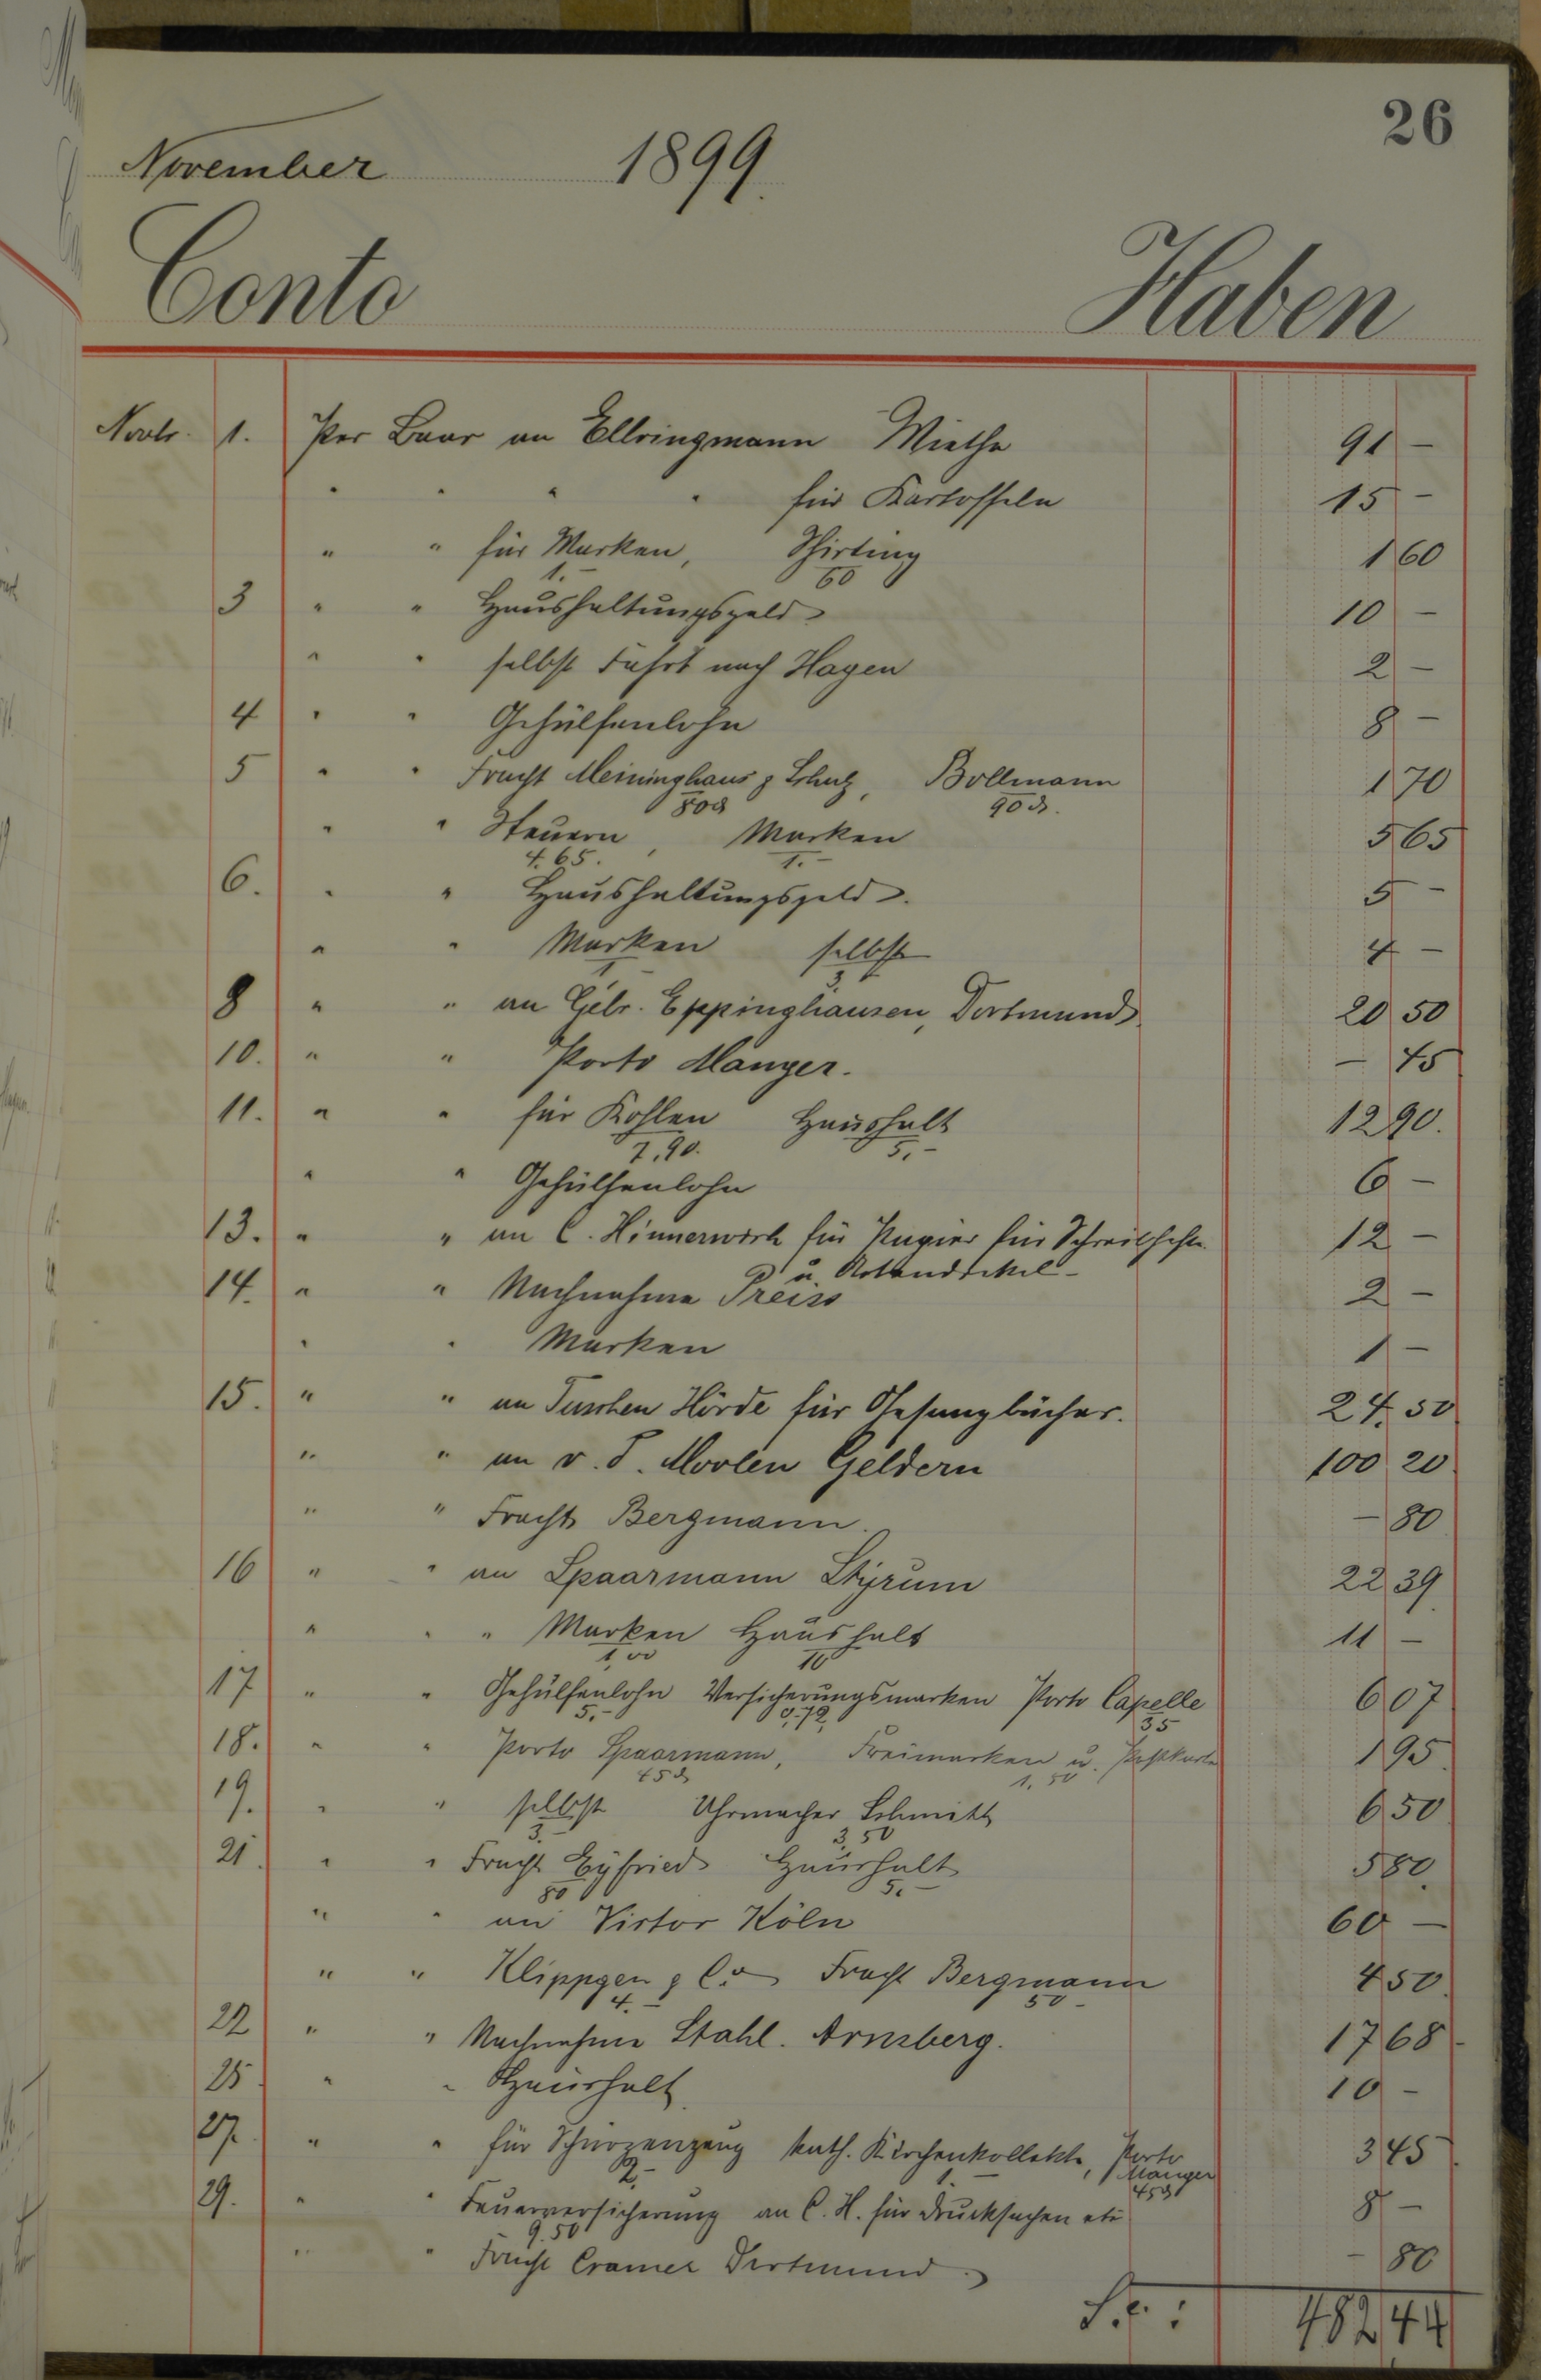 26
November 1899.
Conto Haben
Novbr. 1. Per Baar an Ellringmann Miethe 91 –
" " " " für Kartoffeln 15 –
" " für Marken, Shirting 1 60
1.– 60
3 " " Haushaltungsgeld 10 –
" " selbst Fahrt nach Hagen 2 –
4 " " Gehülfenlohn 8 –
5 " " Fracht Meininghaus & Schulz, Bollmann 1 70
80 ₰ 90 ₰.
" " Steuern, Marken 5 65
4.65. 1.–
6. " " Haushaltungsgeld. 5 –
" " Marken selbst 4 –
1, 3
8 " " an Gebr. Eppinghausen, Dortmund 20 50
10. " " Porto Manger. – 45
11. " " für Kohlen Haushalt 12 90.
7,90. 5,–
" " Gehülfenlohn 6 –
13. " " an C. Hinnerwisch für Papier für Schreibhefte 12 –
u.
14. " " Nachnahme Preiss 2 –
" " Marken 1 –
15. " " an Hörde für Gesangbücher. 24. 50
" " an v. d. Moolen Geldern 100 20
" " Fracht Bergmann. – 80
16 " " an Spaarmann Styrum 22 39
" " " Marken Haushalt 11 –
1,00 10
17 " " Gehülfenlohn Versicherungsmarken Porto Capelle 6 07
5.– 0.72, 35
18. " " Porto Spaarmann, Freimarken u. Postkarte 1 95.
45 ₰ 1,50
19. " " selbst Uhrmacher Schmitt 6 50
3.– 3,50
21. " " Fracht Eyfried Haushalt 5 80.
80 5.–
" " an Victor Köln 60 –
" " Klippgen & Co Fracht Bergmann 4 50.
4.– 50 –
22 " " Nachnahme Stahl. Arnsberg. 17 68
25 " " Haushalt 10 –
27. " " für Schürzenzeug kath. Kirchenkollekte, Porto 3 45
Manger
2,– 1.– 45 ₰
29. " " Feuerversicherung an C. H. für Drucksachen etc 8 –
9.50
" " Fracht Cramer Dortmund. – 80
482 44